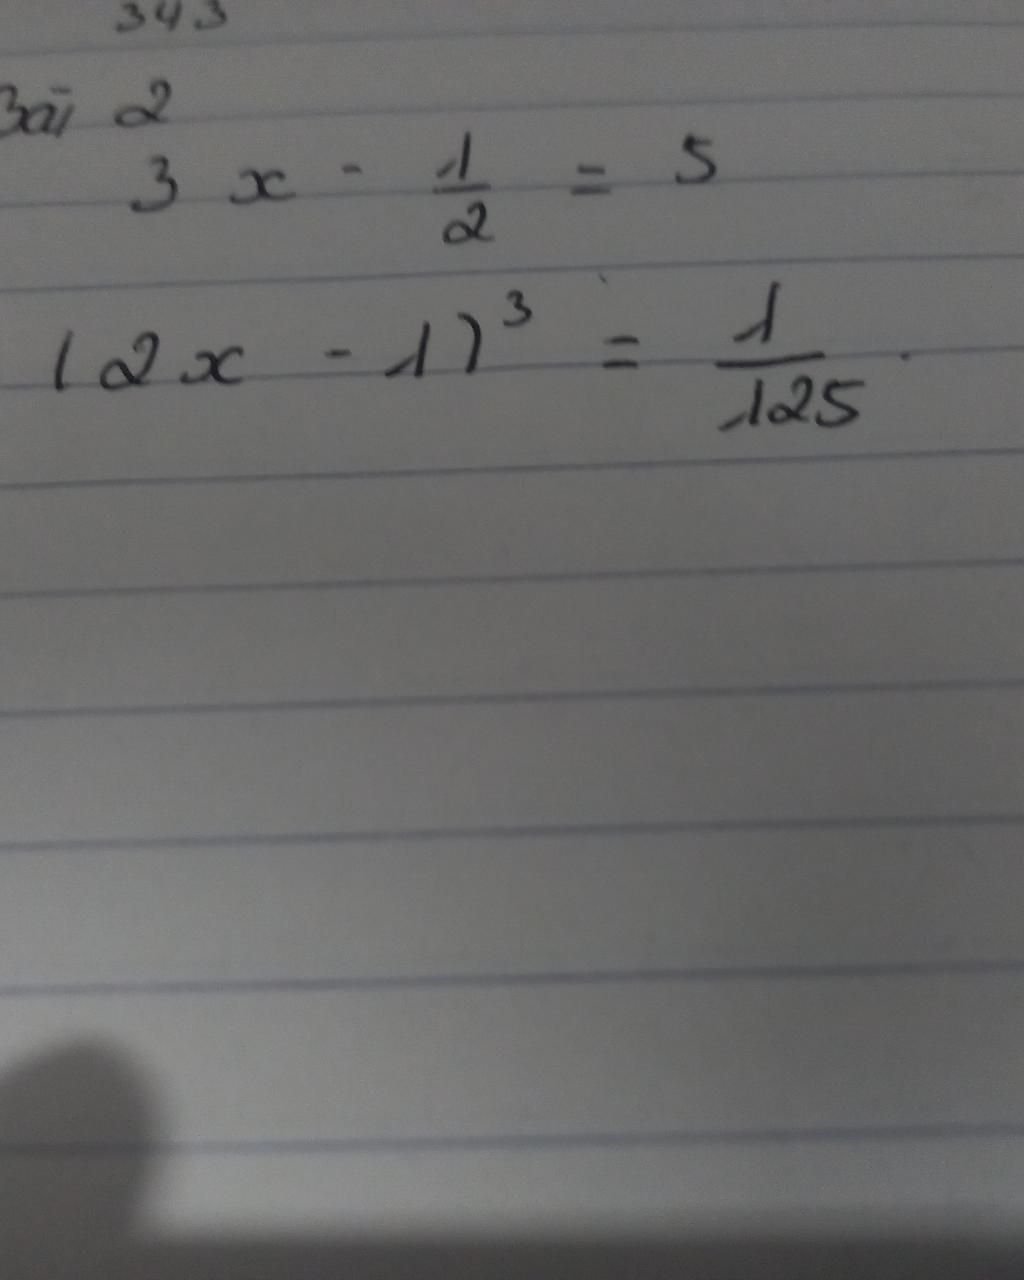 343
Bài 2
3 x - 1/2 = 5
(2x - 1)³ = 1/125.